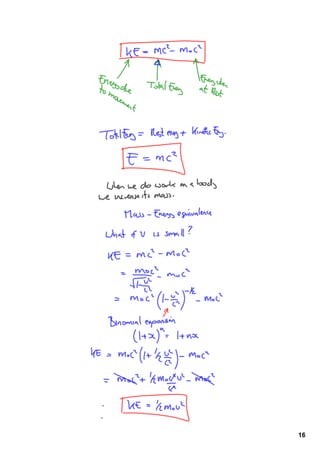 KE = mc² - m₀c²
Energy due to movement
Total Energy
Energy when at Rest
Total Energy = Rest energy + Kinetic Energy.
E = mc²
When we do work on a body
we increase its mass.
Mass - Energy equivalence
What if v is small?
KE = mc² - m₀c²
= m₀c² / √(1 - v²/c²) - m₀c²
= m₀c² (1 - v²/c²)^(-1/2) - m₀c²
Binomial expansion
(1+x)ⁿ = 1 + nx
KE = m₀c² (1 + 1/2 v²/c²) - m₀c²
= m₀c² + 1/2 m₀c²v²/c² - m₀c²
KE = 1/2 m₀v²
16